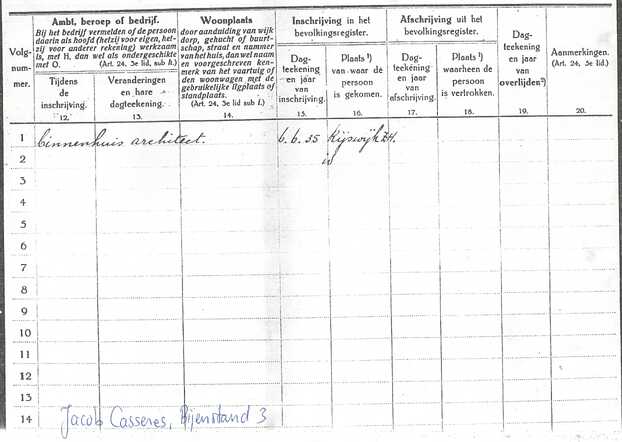 Volg-
num-
mer.
Ambt, beroep of bedrijf.
Bij het bedrijf vermelden of de persoon
daarin als hoofd (hetzij voor eigen, het-
zij voor anderer rekening) werkzaam
is, met H, dan wel als ondergeschikte
met O. (Art. 24, 3e lid, sub h.)
Tijdens
de
inschrijving.
12.
Veranderingen
en hare
dagteekening.
13.
Woonplaats
door aanduiding van wijk
dorp, gehucht of buurt-
schap, straat en nummer
van het huis, dan wel naam
en voorgeschreven ken-
merk van het vaartuig of
den woonwagen met de
gebruikelijke ligplaats of
standplaats.
(Art. 24, 3e lid sub f.)
14.
Inschrijving in het
bevolkingsregister.
Dag-
teekening
en jaar
van
inschrijving.
15.
Plaats ¹)
van waar de
persoon
is gekomen.
16.
Afschrijving uit het
bevolkingsregister.
Dag-
teekening
en jaar
van
afschrijving.
17.
Plaats ¹)
waarheen de
persoon
is vertrokken.
18.
Dag-
teekening
en jaar
van
overlijden²)
19.
Aanmerkingen.
(Art. 24, 3e lid.)
20.
1 binnenhuis architect. 6.6.35 Rijswijk ZH.
2
3
4
5
6
7
8
9
10
11
12
13
14
Jacob Casseres, Bijenstand 3